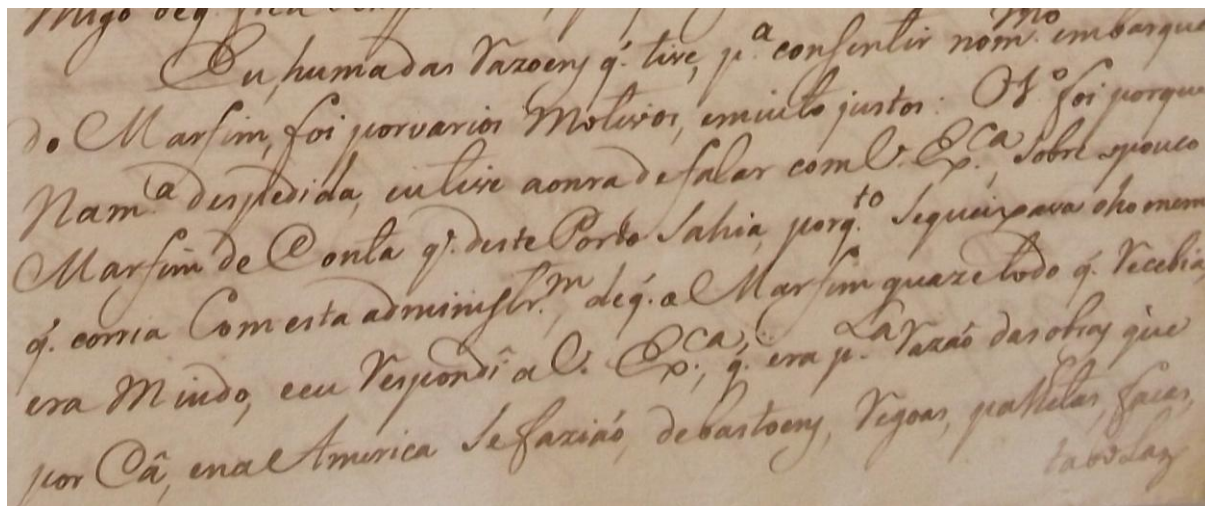 Eu, huma das razoens q̃. tive, p.ª consentir no m.mo embarque
do Marfim, foi por varios Motivos, e muito justos: O 1.º foi porque
Na m.ª despedida, eu tive a onra de falar com V. Ex.ca, Sobre o pouco
Marfim de Conta q̃. deste Porto Sahia, porq.to Se queixava o homem
q̃. corria Com esta administr.m, de q̃. o Marfim quaze todo q̃. Recebia,
era Miudo, e eu Respondi a V. Ex.ca, q̃. era p.La Razaõ das obras que
por Câ, e na America Se faziaõ, de bastoens, Regoas, palletas, facas,
taboLas